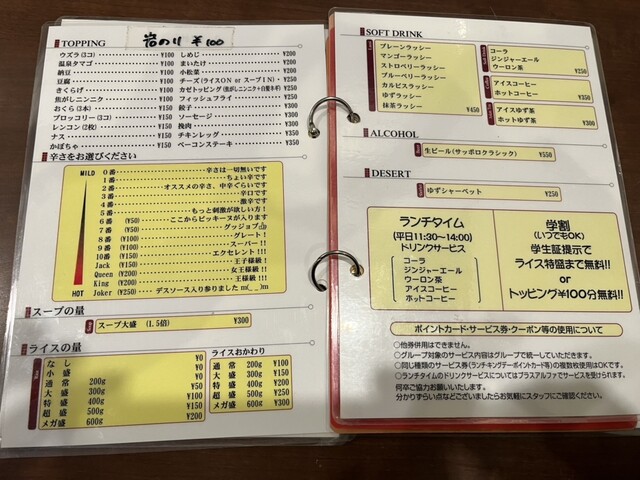 TOPPING
岩のり ¥100
ウズラ(3コ) ¥100
温泉タマゴ ¥100
納豆 ¥100
豆腐 ¥100
きくらげ ¥100
焦がしニンニク ¥100
おくら(3本) ¥150
ブロッコリー(3コ) ¥150
レンコン(2枚) ¥150
ナス ¥150
かぼちゃ ¥150
しめじ ¥200
まいたけ ¥200
小松菜 ¥200
チーズ(ライスON or スープIN) ¥250
カセトッピング(焦がしニンニク+白髪ネギ) ¥250
フィッシュフライ ¥250
餃子 ¥300
ソーセージ ¥300
挽肉 ¥300
チキンレッグ ¥350
ベーコンステーキ ¥350
辛さをお選びください
MILD 0番 辛さは一切無いです
1番 ちょい辛です
2番 オススメの辛さ、中辛ぐらいです
3番 辛口です
4番 激辛です
5番 もっと刺激が欲しい方!
6番 (¥50) ここからピッキーヌが入ります
7番 (¥50) グッジョブ
8番 (¥100) グレート!
9番 (¥100) スーパー!!
10番 (¥150) エクセレント!!!
Jack (¥150) 王子様級!
Queen (¥200) 女王様級!!
King (¥200) 王様級!!!
HOT Joker (¥250) デスソース入り参りました m(_ _)m
スープの量
スープ大盛 (1.5倍) ¥300
ライスの量
なし ¥0
小盛 ¥0
通常 200g ¥0
大盛 300g ¥50
特盛 400g ¥100
超盛 500g ¥150
メガ盛 600g ¥200
ライスおかわり
通常 200g ¥100
大盛 300g ¥150
特盛 400g ¥200
超盛 500g ¥250
メガ盛 600g ¥300
SOFT DRINK
プレーンラッシー
マンゴーラッシー
ストロベリーラッシー
ブルーベリーラッシー
カルピスラッシー
ゆずラッシー
抹茶ラッシー ¥450
コーラ
ジンジャーエール
ウーロン茶 ¥250
アイスコーヒー
ホットコーヒー ¥350
アイスゆず茶
ホットゆず茶 ¥300
ALCOHOL
生ビール(サッポロクラシック) ¥550
DESERT
ゆずシャーベット ¥250
ランチタイム
(平日11:30~14:00)
ドリンクサービス
コーラ
ジンジャーエール
ウーロン茶
アイスコーヒー
ホットコーヒー
学割
(いつでもOK)
学生証提示で
ライス特盛まで無料!!
or
トッピング¥100分無料!!
ポイントカード・サービス券・クーポン等の使用について
○他券併用はできません。
○グループ対象のサービス内容はグループで統一していただきます。
○同じ種類のサービス券(ランチキングチーポイントカード等)の複数枚使用はOKです。
○ランチタイムのドリンクサービスについてはプラスアルファでサービスを受けられます。
何卒ご協力お願いいたします。
分かりずらい点などございましたらお気軽にスタッフにご確認ください。